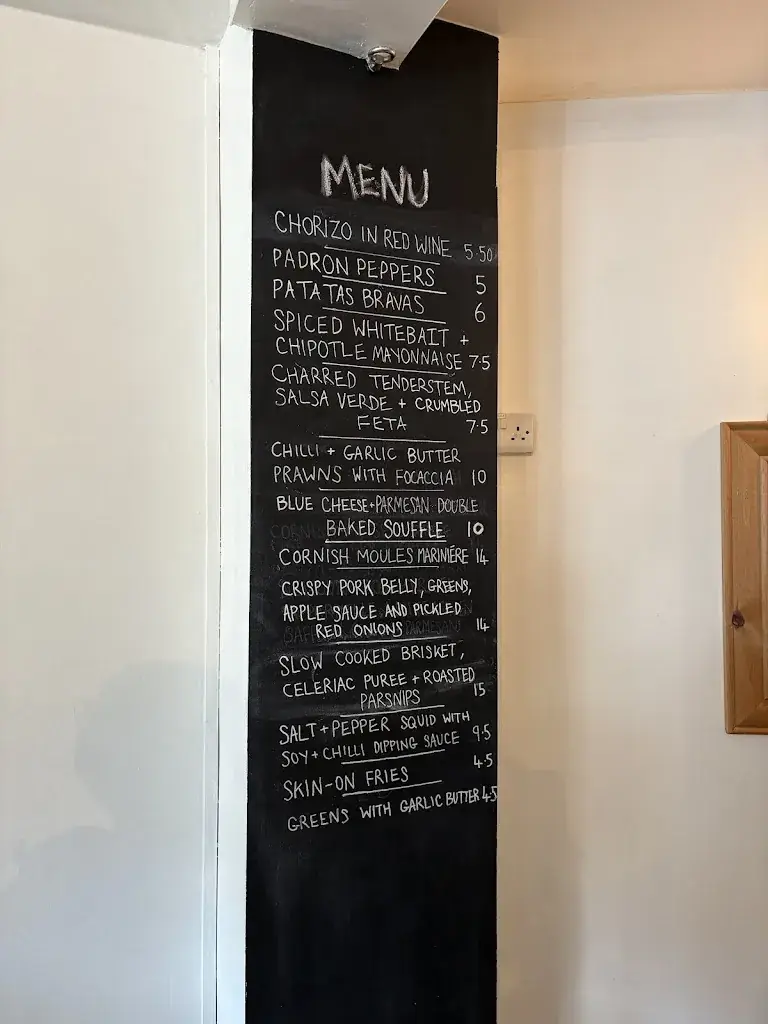 MENU
CHORIZO IN RED WINE 5.50
PADRON PEPPERS 5
PATATAS BRAVAS 6
SPICED WHITEBAIT +
CHIPOTLE MAYONNAISE 7.5
CHARRED TENDERSTEM,
SALSA VERDE + CRUMBLED
FETA 7.5
CHILLI + GARLIC BUTTER
PRAWNS WITH FOCACCIA 10
BLUE CHEESE + PARMESAN DOUBLE
BAKED SOUFFLE 10
CORNISH MOULES MARINIÉRE 14
CRISPY PORK BELLY, GREENS,
APPLE SAUCE AND PICKLED
RED ONIONS 14
SLOW COOKED BRISKET,
CELERIAC PUREE + ROASTED
PARSNIPS 15
SALT + PEPPER SQUID WITH
SOY + CHILLI DIPPING SAUCE 9.5
SKIN-ON FRIES 4.5
GREENS WITH GARLIC BUTTER 4.5